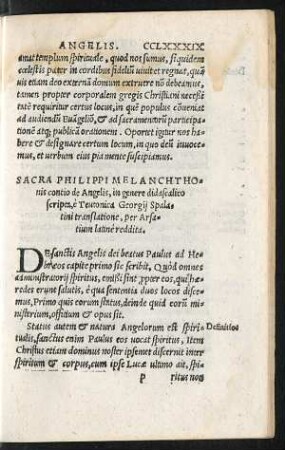 ANGELIS. CCLXXXIX
amat templum spirituale, quod nos sumus, siquidem
cœlestis pater in cordibus fidelium viuit et regnat, quãuis
etiam deo externũ domum extruere nõ debeamus,
tamen propter corporalem gregis Christiani necessitatẽ
requiritur certus locus, in quẽ populus cõueniat
ad audiendũ Euãgeliõ, & ad sacramentorũ participationẽ
atq; publicã orationem. Oportet igitur nos habere
& designare certum locum, in quo deũ inuocemus,
et uerbum eius pia mente suscipiamus.
SACRA PHILIPPI MELANCHTHOnis
contio de Angelis, in genere didascalico
scripta, è Teutonica Georgij Spalatini
translatione, per Arsatium
latinè reddita.
DE sanctis Angelis dei beatus Paulus ad Hebræos
capite primo sic scribit, Quòd omnes
administratorij spiritus, emissi sint ꝓpter eos, qui hæredes
erunt salutis, è qua sententia duos locos discemus,
Primo quis eorum status, deinde quid eorũ ministerium,
officium & opus sit.
Status autem & natura Angelorum est spiritualis,
Definitio
sanctus enim Paulus eos uocat spiritus, Item
Christus etiam dominus noster ipsemet discernit inter
spiritum & corpus, cum ipse Lucæ ultimo ait, spiritus
p ritus non